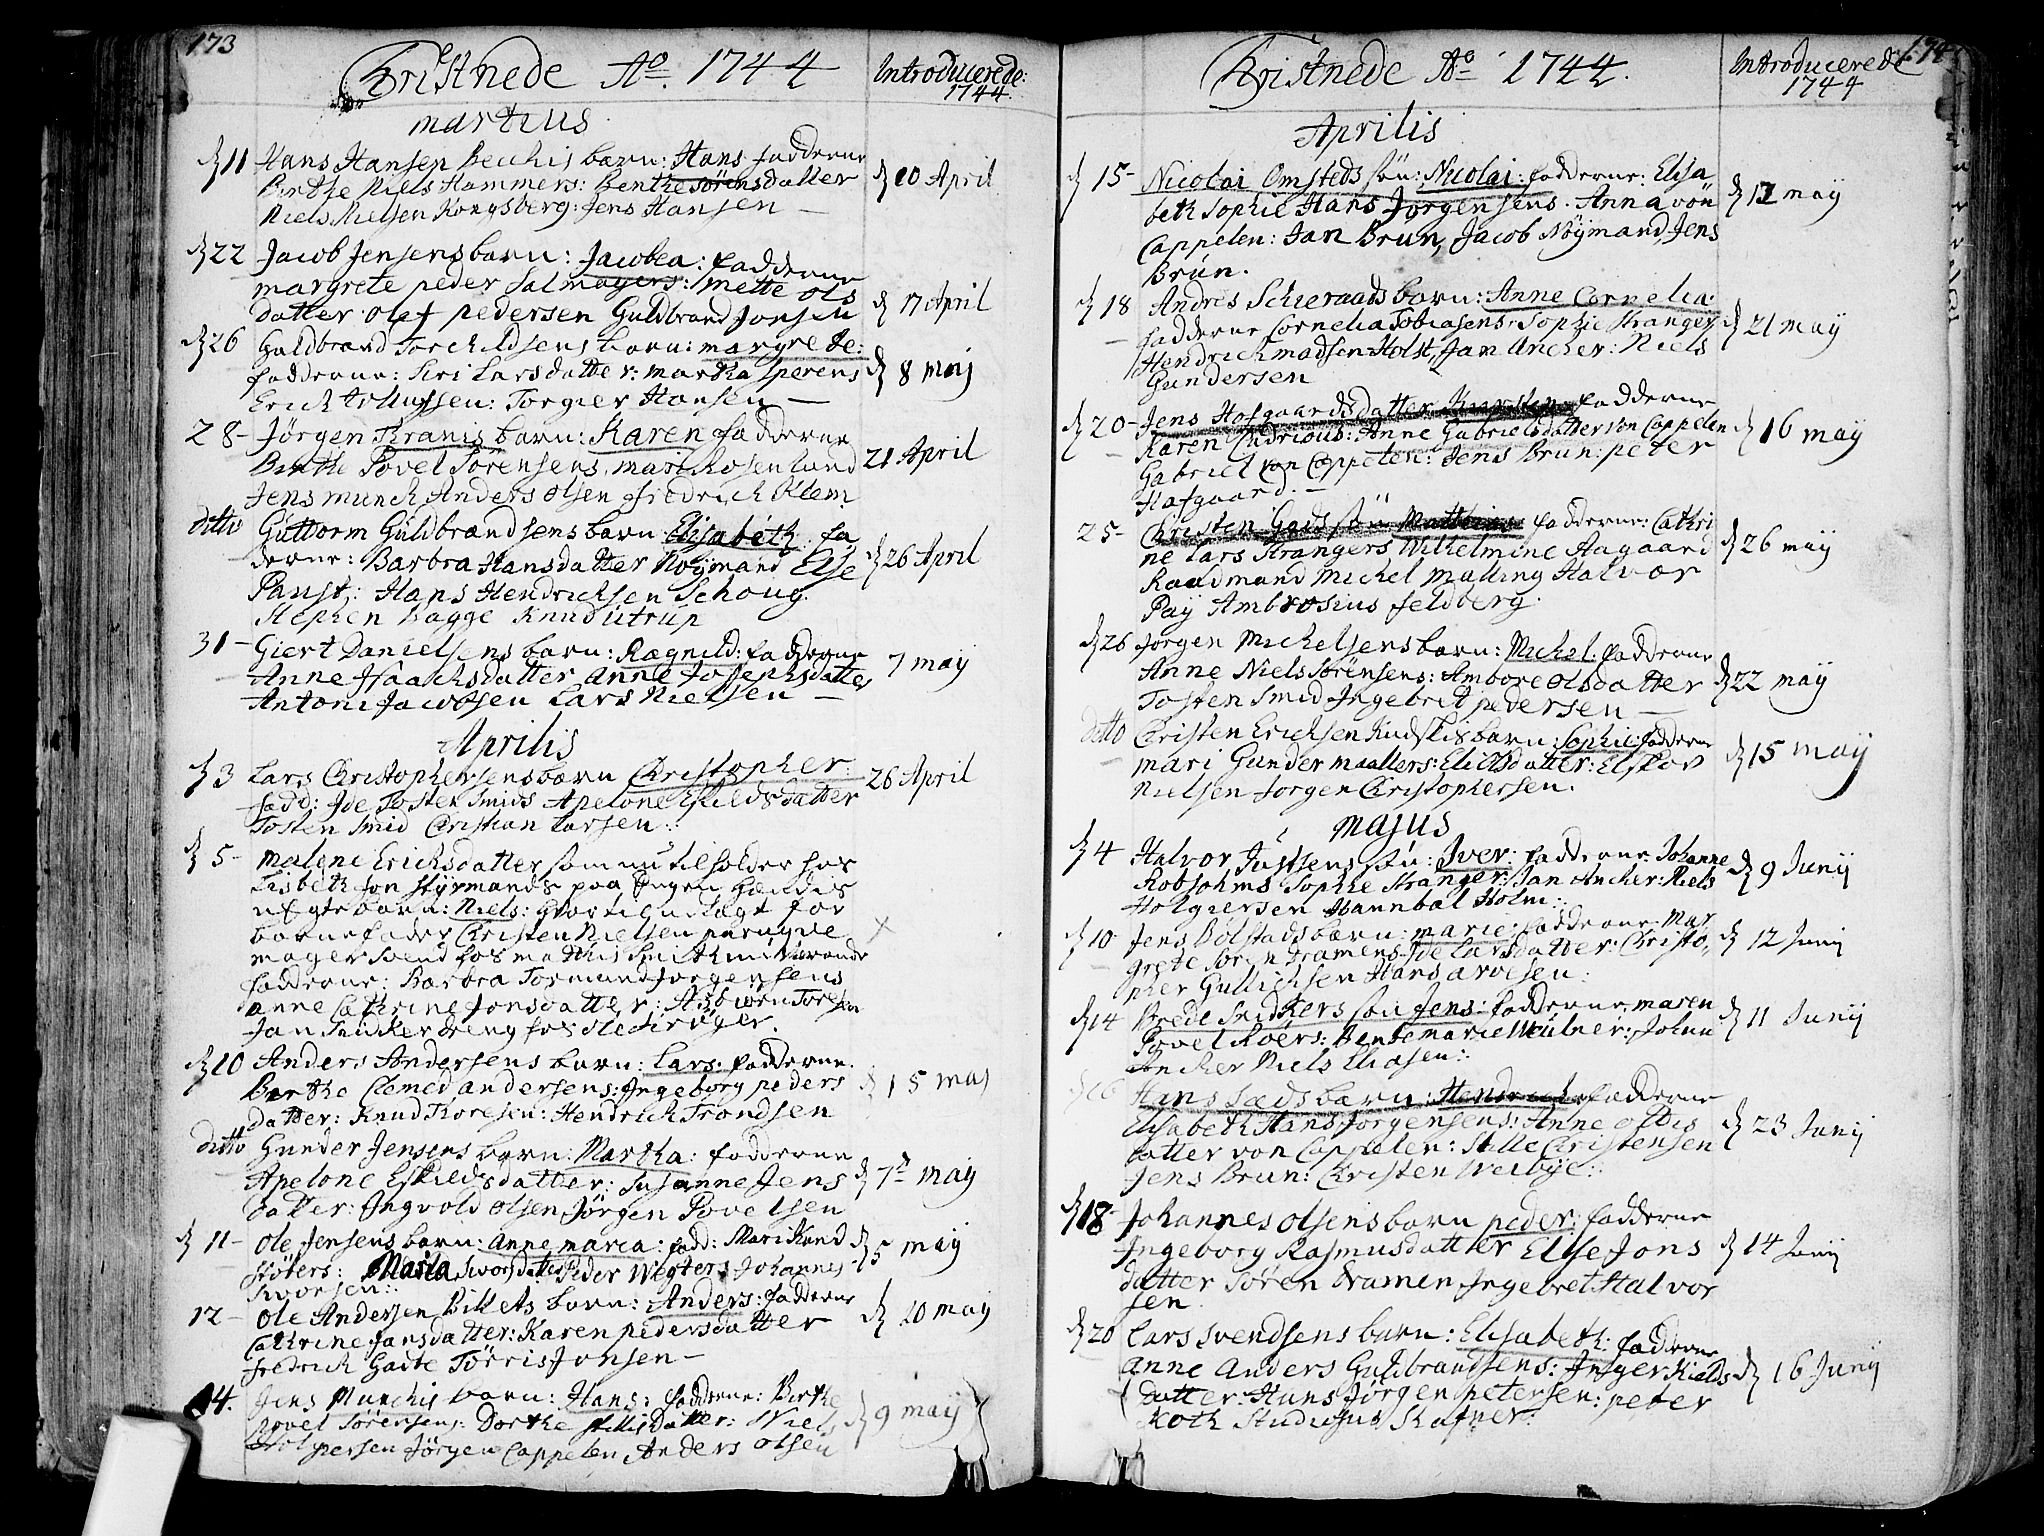 173
Christnede Ao. 1744
Introducerede:
1744.
martius
11 Hans Hansen Becchis barn: Hans fadderne
Birthe Niels Hammers: Benthe Sørensdatter
Niels Nielsen Kongsberg: Jens Hansen —
20 April
22 Jacob Jensens barn: Jacobea: fadderne
margrete peder Salmagers: mette ols
datter olef pedersen Guldbrand Jonsen
17 April
26 Guldbrand Torchildsens barn: margrete:
fadderne: Siri Larsdatter: martha Iperens
Erich Torgier Hansen —
8 maj
28- Jørgen Kranes barn: Karen fadderne
Birthe Povel Sørensens, mari Rosenlund
Jens munch Anders olsen fredrich Klem
21 April
ditto Guttorm Guldbrandsens barn Elisabeth. fa
derne: Barbra Hansdatter Nøymand Else
Panst: Hans Hendrichsen Schoug.
Stephen Bagge Knud utrup
26 April
31- Giert Danielsens barn: Rægnild: fadderne
Anne Isaachsdatter anne Josephsdatter
Antoni Jacobsen Lars Nielsen —
7 may
Aprilis
3 Lars Christophersens barn Christopher:
fadd: Ide Tosten Smids Apelone Eskildsdatter
Tosten Smid Christian Larsen:
26 April
5- malene Erichsdatter som nu tilholder hos
Lisbeth Jon Styrmands paa Engen hændis
uEgte barn: Niels: hvortil udlægt for
barnefader Christen Nielsen peruqve
mager svend hos mathis Smith
fadderne: Barbra Tormund Jørgensens
anne Cathrine Jonsdatter: Asbiørn Toresen
Jan Snicker dreng hos Ole Krøger.
×
10 Anders Andersens barn: Lars: fadderne.
Berthe Clemed andersens: Ingeborg peders
datter: Knud Thoresen: Hendrich Trondsen
15 maj
ditto Gunder Jensens barn: Martha: fadderne
Apelone Eskildsdatter: Susanne Jens
datter: Ingvold olsen, Jørgen Povelsen
7 may
11- Ole Jensens barn: Anne marea: fadd: Mari Knud
Støters: Maria Iworsdatter Peder Wegters Johannes
Iworsen:
5 may
12- Ole Andersen Billets barn: Anders: fadderne
Cathrine Jansdatter: Karen pedersdatter
fredrich Gaite Tørris Jonsen —
20 may
14. Jens Munchis barn: Hans: fadderne: Birthe
Povel Sørensens: Dorthe datter: Niels
Holgiersen Jørgen Cappelen Anders olsen
9 maij
174
Christnede Ao 1744.
Introducerede
1744
Aprilis
15- Nicolai Omsteds søn: Nicolai: fadderne: Elisa
beth Sophie Hans Jørgensens. Anna von
Cappelen: Jan Brun, Jacob Nøymand, Jens
Brun.
12 may
18 Andres Schieraads barn: Anne Cornelia:
fadderne Cornelia Tobiasens: Sophie Stranger
Hendrich madsen Holst, Jan Ancher: Niels
Gundersen
21 may
20- Jens Hofgaards datter fadderne
Karen Anne Gabrielsdatter von Cappelen
Gabriel von Cappelen: Jens Brun: peter
Hafgaard. —
16 may
25- Christen Gads søn Matthias fadderne: Cathri
ne Lars Strangers Wilhelmine Aagaard
Raadmand Michel Malling Halvor
Pay Ambrosius feldberg.
26 may
26 Jørgen Michelsens barn: Michel: fadderne
Anne Niels Sørensens: Ambore olsdatter
Tosten Smid Ingebret pedersen —
22 may
ditto Christen Erichsen barn: Sophie: fadderne
mari Gunder maallers: Elicksdatter: Elskov
Nielsen Jørgen Christophersen.
15 may
majus
4 Halvor Justsens søn: Iver: fadderne: Johanne
Robsohms Sophie Stranger: Jan Ancher: Niels
Holgiersen Hannibal Holm:
9 Junij
10 Jens Bølstads barn: marie: fadderne: Mar
grete Søren Dramens: Ide Larsdatter: Christo,
pher Gullichsen Hans arvesen:
12 Junij
14 Brede Snidkers søn Jens: fadderne, maren
Povel Roers: Bente marie Meulner: Johan
Ancher Niels Eliasen:
11 Junij
16 Hans Sæds barn: Hendrich: fadderne
Elisabeth Hans Jørgensens: Anne oftis
datter von Cappelen: Sille Christensen
Jens Brun: Christen Weibye:
23 Junij
18- Johannes olsens barn peder: fadderne
Ingeborg Rasmusdatter Else Jons
datter Søren Dramen Ingebret Halvor
sen.
14 Junij
20 Lars Svendsens barn: Elisabeth: fadderne
anne anders Guldbrandsens: Inger Kields
datter: Hans Jørgen petersen: peter
Koth Studiosus Skafner:
16 Junij